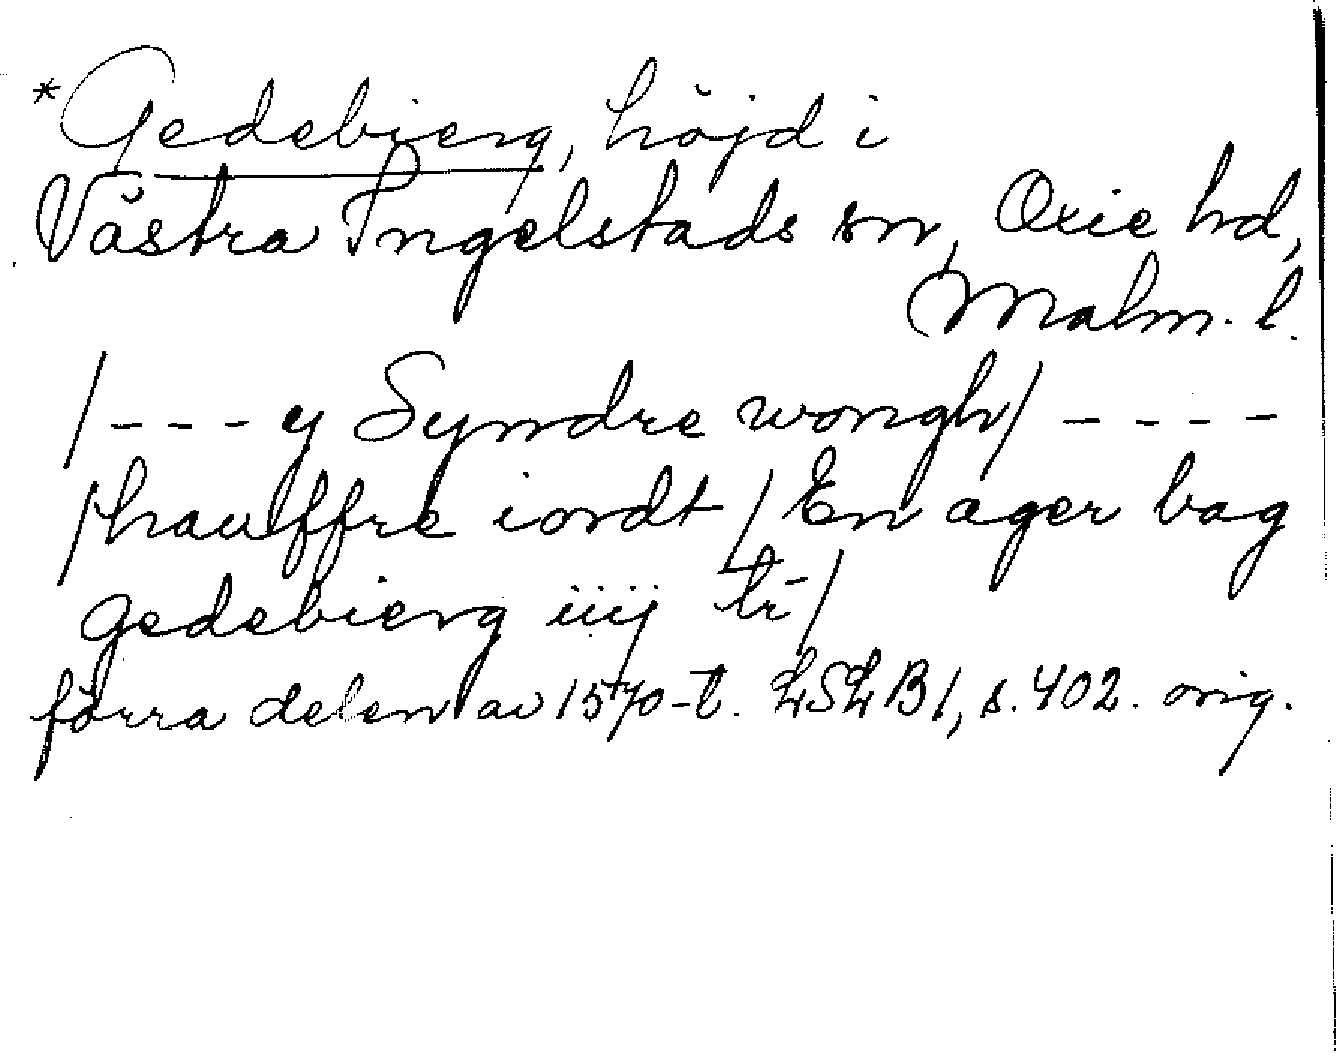 *Gedebierg, höjd i
Västra Ingelstads sn, Oxie hd,
Malm. l.
/--- y Syndre wongh/ ----
/hauffre iordt / En ager bag
gedebierg iiij
förra delen av 1570-t. LSLB1, s. 402. orig.